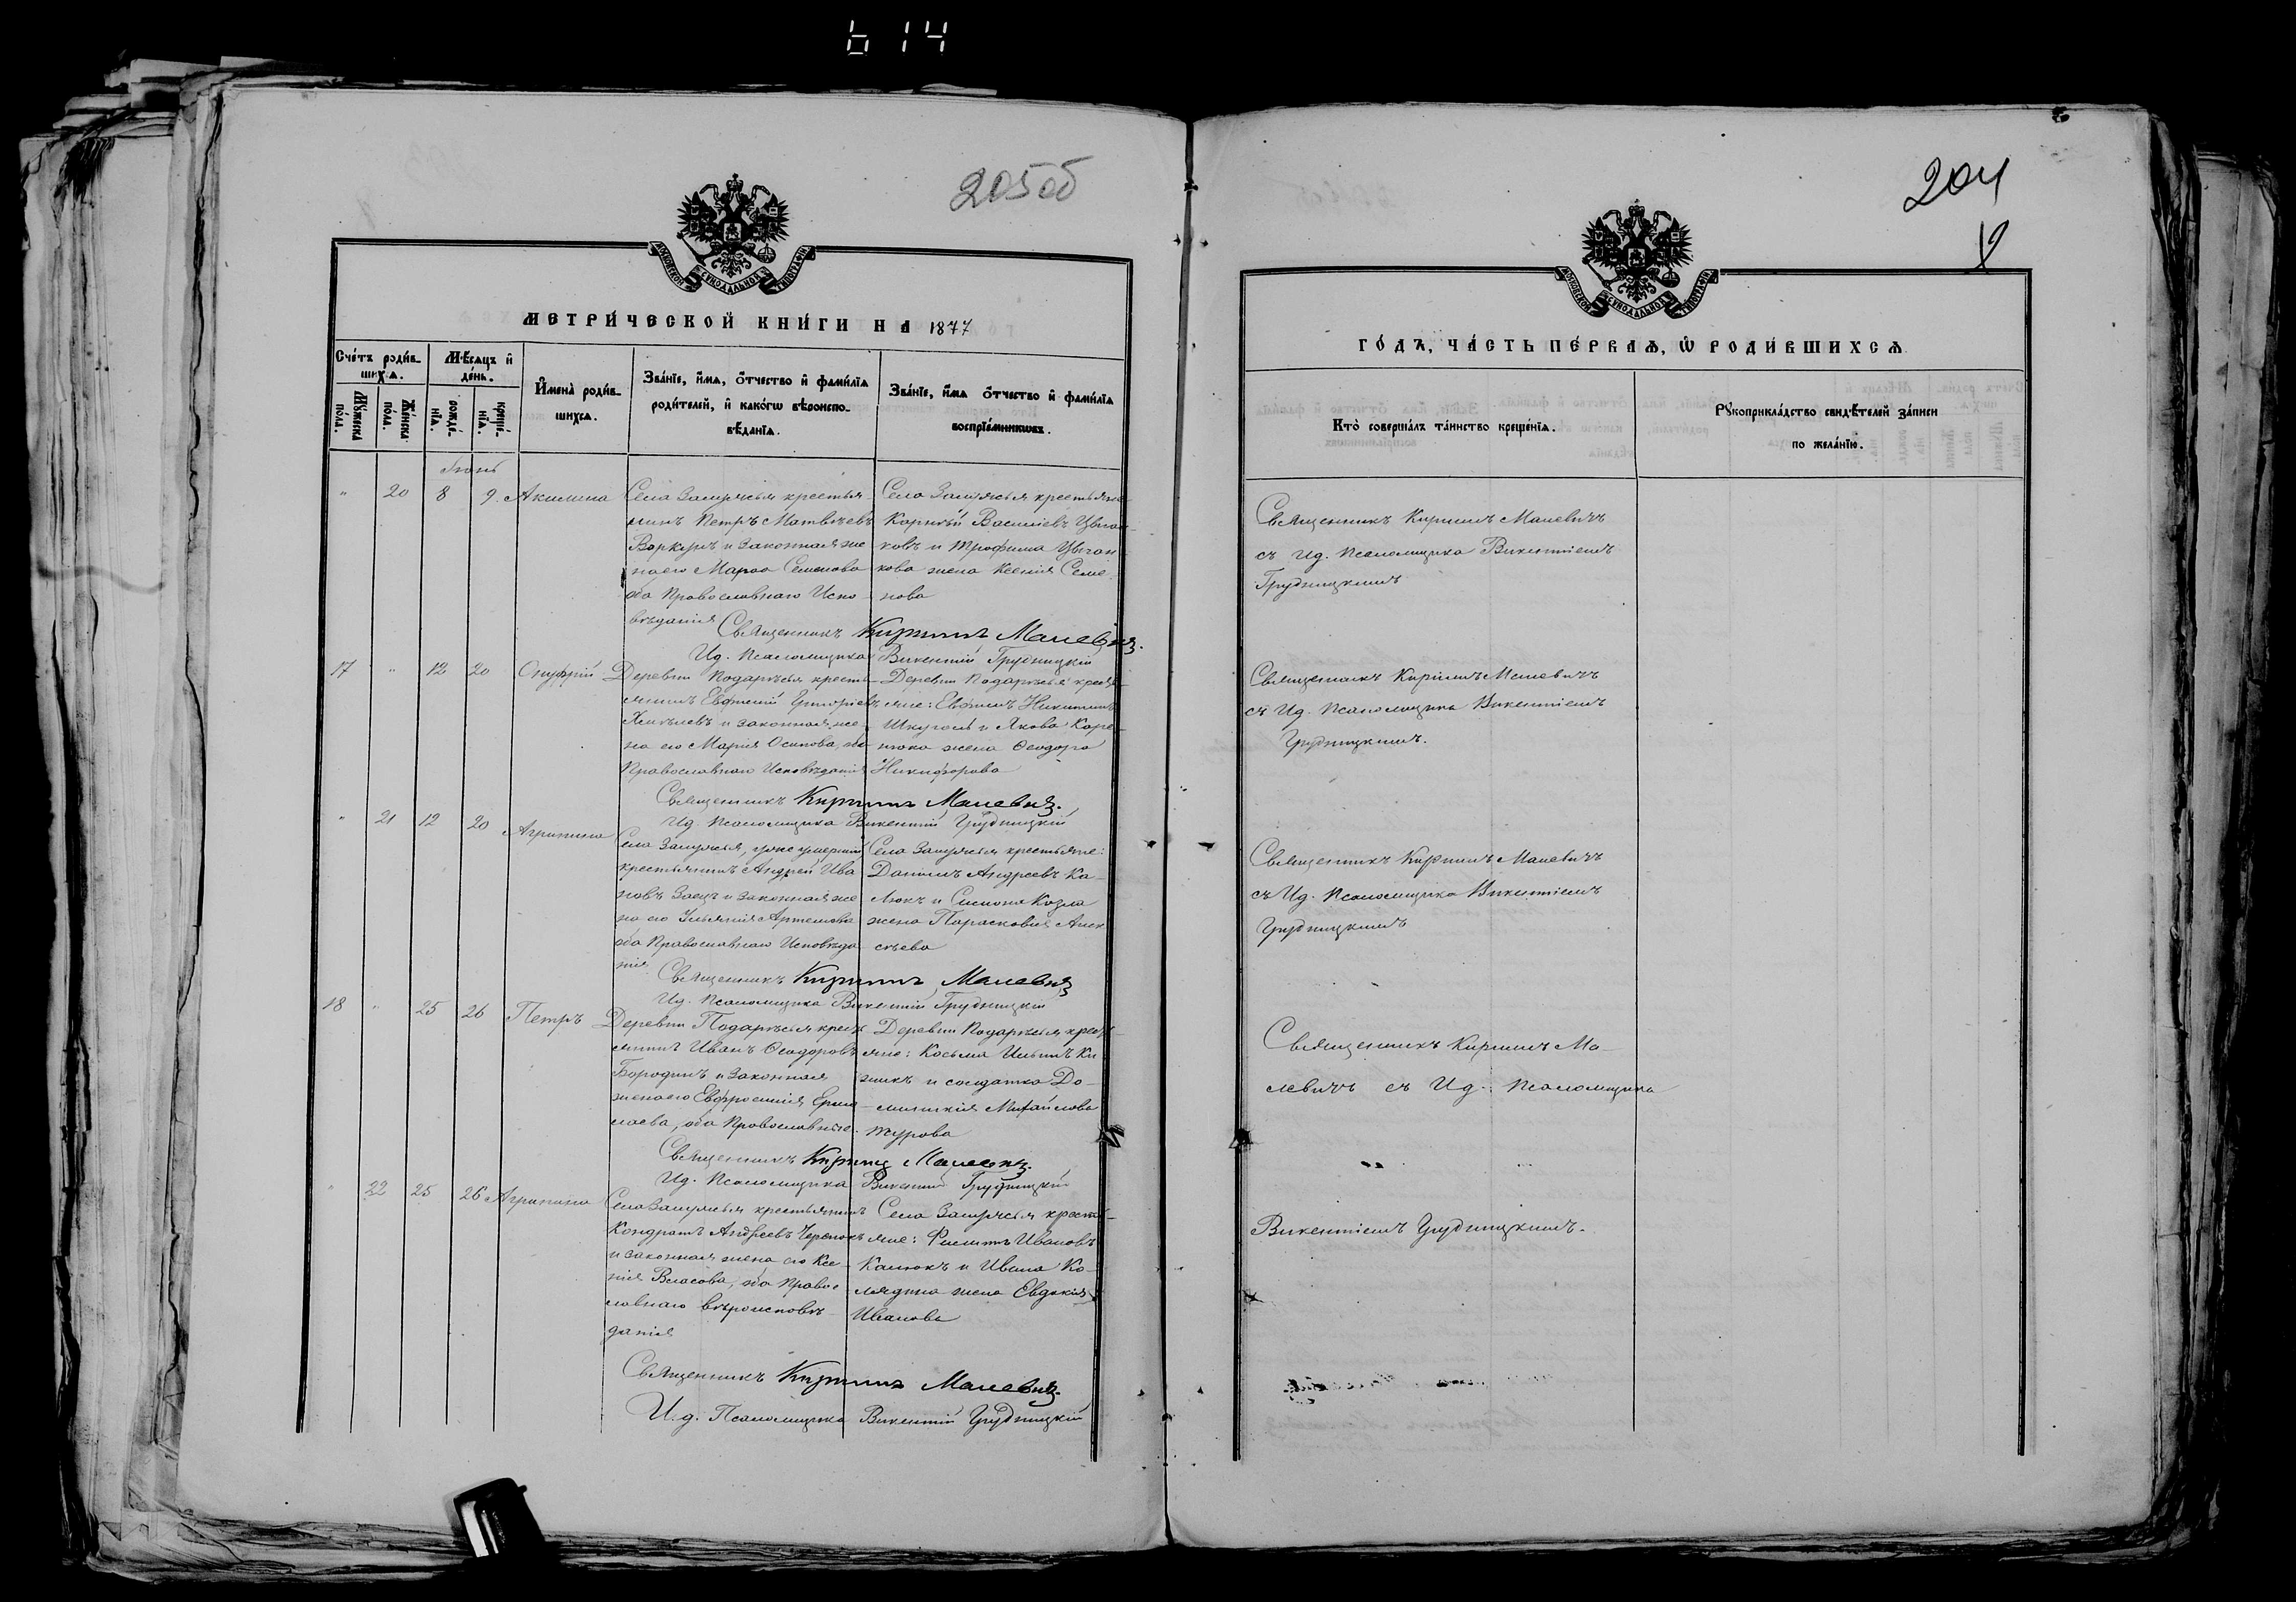 614
205об
204
МОСКОВСКОЙ СѴНОДАЛЬНОЙ ТИПОГРАФІИ
МЕТРИЧЕСКОЙ КНИГИ НА 1877
Счетъ родив-
шихся.
Мѣсяцъ и
день.
Имена родив-
шихся.
Званіе, имя, отчество и фамилія
родителей, и какогѡ вѣроиспо-
вѣданія.
Званіе, имя отчество и фамилія
воспріемниковъ.
Мужеска пола.
Женска пола.
рожденія.
крещенія.
Іюнь
" 20 8 9. Акилина
Села Замужья крестья-
нинъ Петръ Матвѣевъ
и законная же
на его Марѳа Семенова
оба Православнаго Испо-
вѣданія
Села Замужья крестьяне
Корнѣй Василіевъ Цыган-
ковъ и Трофима Цыган
кова жена Ксенія Семе-
нова
Священникъ Кириллъ Малевичъ.
Ид. Псаломщика Викентій Грудницкій
17 " 12 20 Онуфрій
Деревни Подарѣсья кресть-
янинъ Евфимій Григоріевъ
и законная же-
на его Марія Осипова, оба
Православнаго Исповѣданія
Деревни Подарѣсья кресть-
яне: Евфимъ Никитинъ
и Якова Коре-
нюка жена Ѳеодора
Никифорова
Священникъ Кириллъ Малевичъ.
Ид. Псаломщика Викентій Грудницкій
" 21 12 20 Агрипина
Села Замужья, уже умершій
крестьянинъ Андрей Ива
новъ Заецъ и законная же
на его Ульянія Артемова
оба Православнаго Исповѣда
нія
Села Замужья крестьяне:
Даніилъ Андреевъ Ка-
люкъ и Симона Козла
жена Парасковія Алек
сѣева
Священникъ Кириллъ Малевичъ
Ид. Псаломщика Викентій Грудницкій
18 " 25 26 Петръ
Деревни Подарѣсья крест
янинъ Иванъ Ѳеодоровъ
Бородинъ и законная
жена его Евфросинія Ермо-
лаева, оба Православные.
Деревни Подарѣсья крест-
яне: Косьма Ильинъ Ки
жикъ и солдатка До-
миникія Михайлова
Журова
Священникъ Кириллъ Малевичъ.
Ид. Псаломщика Викентій Грудницкій
" 22 25 26 Агрипина
Села Замужья крестьянинъ
Кондратъ Андреевъ Черенокъ
и законная жена его Ксе-
нія Власова, оба Правос
лавнаго вѣроисповѣ-
данія
Села Замужья кресть-
яне: Филиппъ Ивановъ
Калюкъ и Ивана Ко-
лядина жена Евдокія
Иванова
Священникъ Кириллъ Малевичъ.
И.д. Псаломщика Викентій Грудницкій
МОСКОВСКОЙ СѴНОДАЛЬНОЙ ТИПОГРАФІИ
ГОДЪ, ЧАСТЬ ПЕРВАЯ, Ѡ РОДИВШИХСЯ
Кто совершалъ таинство крещенія.
Рукоприкладство свидѣтелей записи
по желанію.
Священникъ Кириллъ Малевичъ
съ Ид. Псаломщика Викентіемъ
Грудницкимъ
Священникъ Кириллъ Малевичъ
съ Ид. Псаломщика Викентіемъ
Грудницкимъ.
Священникъ Кириллъ Малевичъ
съ Ид. Псаломщика Викентіемъ
Грудницкимъ
Священникъ Кириллъ Ма-
левичъ съ Ид. Псаломщика
Викентіемъ Грудницкимъ.